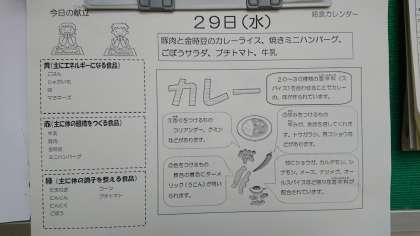 今日の献立
給食カレンダー
29日(水)
豚肉と金時豆のカレーライス、焼きミニハンバーグ、
ごぼうサラダ、プチトマト、牛乳
黄(主にエネルギーになる食品)
ごはん
じゃがいも
油
マヨネーズ
赤(主に体の組織をつくる食品)
牛乳
豚肉
金時豆
ミニハンバーグ
緑(主に体の調子を整える食品)
たまねぎ
コーン
にんじん
プチトマト
にんにく
ごぼう
カレー
20~30種類の香辛料(ス
パイス)を合わせることでカレー
の、味が作られています。
コリアンダー、クミン
などがあります。
トウガラシ、黒コショウな
どがあります。
色をつけるもの
黄色の着色にターメ
リック(うこん)が用い
られます。
他にこしょうが、カルダモン、シ
ナモン、メース、ナツメグ、オー
ルスパイスなど様々な香辛料が
配合されています。